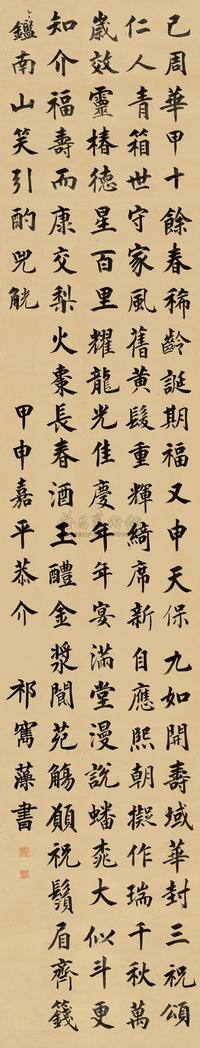 已周華甲十餘春稀齡誕期福又申天保九如開壽域華封三祝頌
仁人青箱世守家風舊黃髮重輝綺席新自應熙朝擬作瑞千秋萬
歲效靈椿德星百里耀龍光佳慶年年宴滿堂漫說蟠桃大似斗更
知介福壽而康交梨火棗長春酒玉醴金漿閬苑觴願祝鬚眉齊籛
鑑南山笑引酌兕觥 甲申嘉平恭介 祁寯藻書